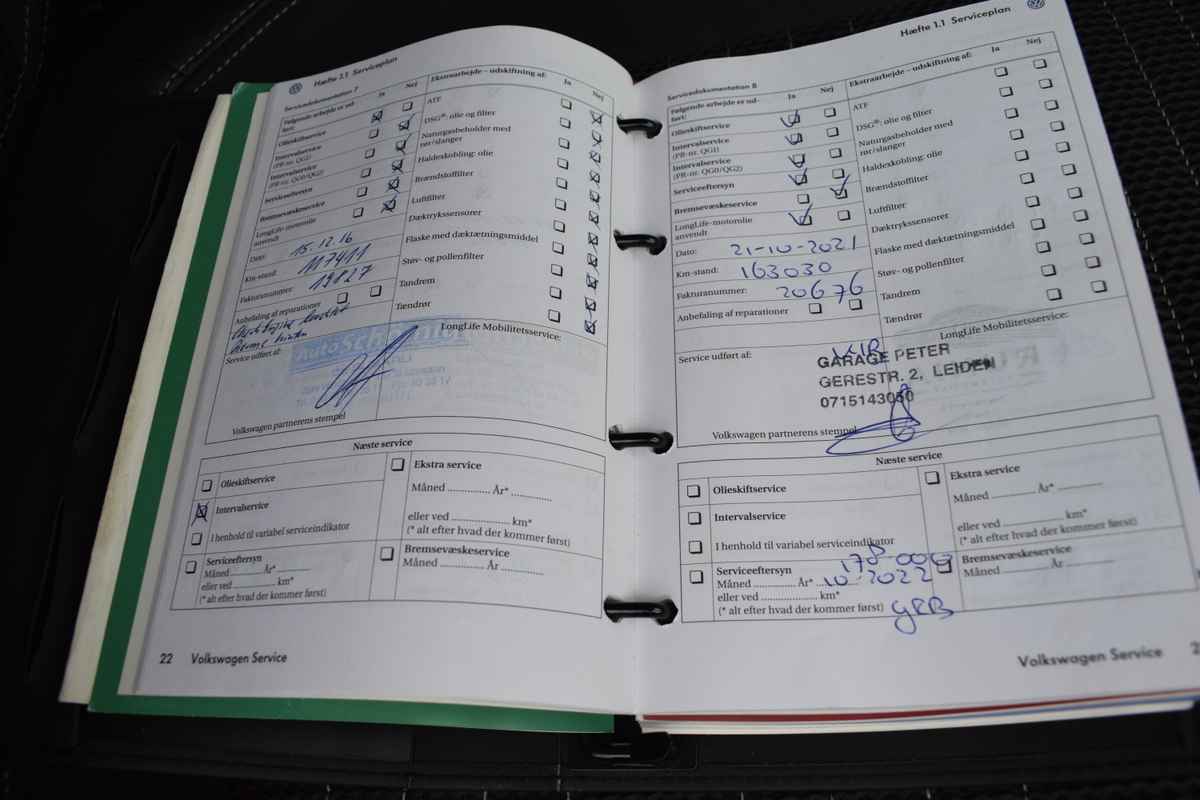 Hæfte 1.1 Serviceplan
Servicedokumentation 7
Følgende arbejde er ud-
ført:
Ja
Nej
Olieskiftservice
Intervalservice
(PR-nr. QG1)
Intervalservice
(PR-nr. QG0/QG2)
Serviceeftersyn
Bremsevæskeservice
LongLife-motorolie
anvendt
Dato: 15.12.16
Km-stand: 117411
Fakturanummer: 19827
Anbefaling af reparationer
Ekstraarbejde – udskiftning af:
Ja
Nej
ATF
DSG®: olie og filter
Naturgasbeholder med
rør/slanger
Haldexkobling: olie
Brændstoffilter
Luftfilter
Dæktrykssensorer
Flaske med dæktætningsmiddel
Støv- og pollenfilter
Tandrem
Tændrør
Service udført af:
LongLife Mobilitetsservice:
Volkswagen partnerens stempel
Næste service
Olieskiftservice
Intervalservice
I henhold til variabel serviceindikator
Serviceeftersyn
Måned .......... År*..........
eller ved .................... km*
(* alt efter hvad der kommer først)
Ekstra service
Måned .............. År* .............
eller ved .................... km*
(* alt efter hvad der kommer først)
Bremsevæskeservice
Måned .............. År .............
22 Volkswagen Service
Hæfte 1.1 Serviceplan
Servicedokumentation 8
Følgende arbejde er ud-
ført:
Ja
Nej
Olieskiftservice
Intervalservice
(PR-nr. QG1)
Intervalservice
(PR-nr. QG0/QG2)
Serviceeftersyn
Bremsevæskeservice
LongLife-motorolie
anvendt
Dato: 21-10-2021
Km-stand: 163030
Fakturanummer: 20676
Anbefaling af reparationer
Ekstraarbejde – udskiftning af:
Ja
Nej
ATF
DSG®: olie og filter
Naturgasbeholder med
rør/slanger
Haldexkobling: olie
Brændstoffilter
Luftfilter
Dæktrykssensorer
Flaske med dæktætningsmiddel
Støv- og pollenfilter
Tandrem
Tændrør
Service udført af:
LongLife Mobilitetsservice:
GARAGE PETER
GERESTR. 2, LEIDEN
0715143050
Volkswagen partnerens stempel
Næste service
Olieskiftservice
Intervalservice
I henhold til variabel serviceindikator
Serviceeftersyn
178-000
Måned .......... År* 10-2022
eller ved .................... km*
(* alt efter hvad der kommer først)
Ekstra service
Måned .............. År* .............
eller ved .................... km*
(* alt efter hvad der kommer først)
Bremsevæskeservice
Måned .............. År .............
Volkswagen Service